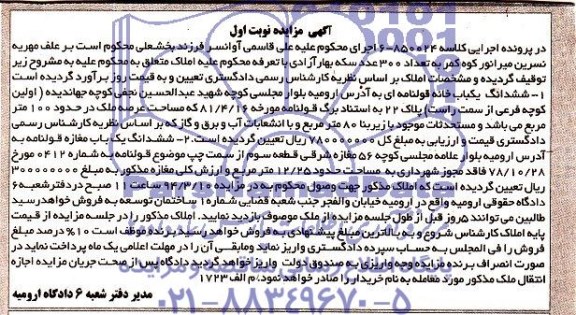 آگهی مزایده نوبت اول
در پرونده اجرایی کلاسه ۸۵۰۰۲۴-۶ اجرای محکوم علیه علی قاسمی آوانسر فرزند بخشعلی محکوم است بر علف مهریه
نسرین میرانور کوه کمر به تعداد ۳۰۰ عدد سکه بهار آزادی با تعرفه محکوم علیه املاک متعلق به محکوم علیه به مشروح زیر
توقیف گردیده و مشخصات املاک بر اساس نظریه کارشناس رسمی دادگستری تعیین و به قیمت روز برآورد گردیده است
۱- ششدانگ یکباب خانه قولنامه ای به آدرس ارومیه بلوار مجلسی کوچه شهید عبدالحسین نجفی کوچه جهاندیده (اولین
کوچه فرعی از سمت راست) پلاک ۲۲ به استناد برگ قولنامه مورخه ۸۱/۴/۱۶ که مساحت عرصه ملک در حدود ۱۰۰ متر
مربع می باشد و مستحدثات موجود با زیربنا ۸۰ متر مربع و با انشعابات آب و برق و گاز که بر اساس نظریه کارشناس رسمی
دادگستری قیمت و ارزیابی به مبلغ کل ۷۸۰۰۰۰۰۰۰ ریال تعیین گردیده است. ۲- ششدانگ یک باب مغازه قولنامه به
آدرس ارومیه بلوار علامه مجلسی کوچه ۵۶ مغازه شرقی قطعه سوم از سمت چپ موضوع قولنامه به شماره ۰۴۱۲ مورخ
۷۸/۱۰/۲۸ فاقد مجوز شهرداری به مساحت حدود ۱۲/۲۵ متر مربع و ارزش کلی مغازه مذکور به مبلغ ۳۰۰۰۰۰۰۰۰
ریال تعیین گردیده است که املاک مذکور جهت وصول محکوم به در مزایده ۹۴/۳/۱۰ ساعت ۱۱ صبح در دفتر شعبه ۶
دادگاه حقوقی ارومیه واقع در ارومیه خیابان والفجر جنب شعبه قضایی شماره ۱ ساختمان توسعه به فروش خواهد رسید
طالبین می توانند ۵ روز قبل از طول جلسه مزایده از ملک موصوف بازدید نمایند. املاک مذکور را در جلسه مزایده از قیمت
پایه املاک کارشناس شروع و به بالاترین مبلغ پیشنهادی به فروش خواهد رسید برنده موظف است ۱۰٪ درصد مبلغ
فروش را فی المجلس به حساب سپرده دادگستری واریز نماید و مابقی آن را در مهلت اعلامی یک ماه پرداخت نماید در
صورت انصراف برنده مزایده وجه واریزی به صندوق دولت واریز خواهد گردید دادگاه پس از صحت جریان مزایده اجازه
انتقال ملک مذکور مورد معامله به نام خریدار را صادر خواهد نمود. م الف ۱۷۲۳
مدیر دفتر شعبه ۶ دادگاه ارومیه
۰۲۱-۸۸۳۴۹۶۷۰-۵